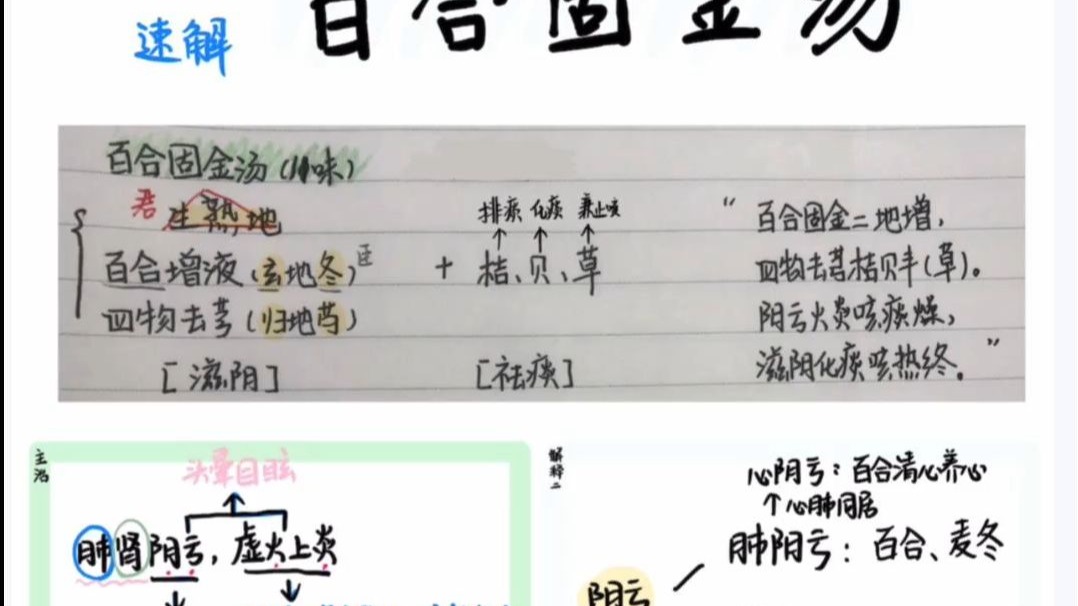 速解
百合固金汤
百合固金汤(川味)
君 生熟地
百合增液(玄地冬)臣
四物去芎(归地芍)
[滋阴]
排痰 化痰 兼止咳
+ 桔、贝、草
[祛痰]
“百合固金二地增,
四物去芎桔贝丰(草)。
阴亏火炎咳痰燥,
滋阴化痰咳热终。”
主治
头晕目眩
肺肾阴亏,虚火上炎
解释二
心阴亏:百合清心养心
心肺同居
肺阴亏:百合、麦冬
阴亏